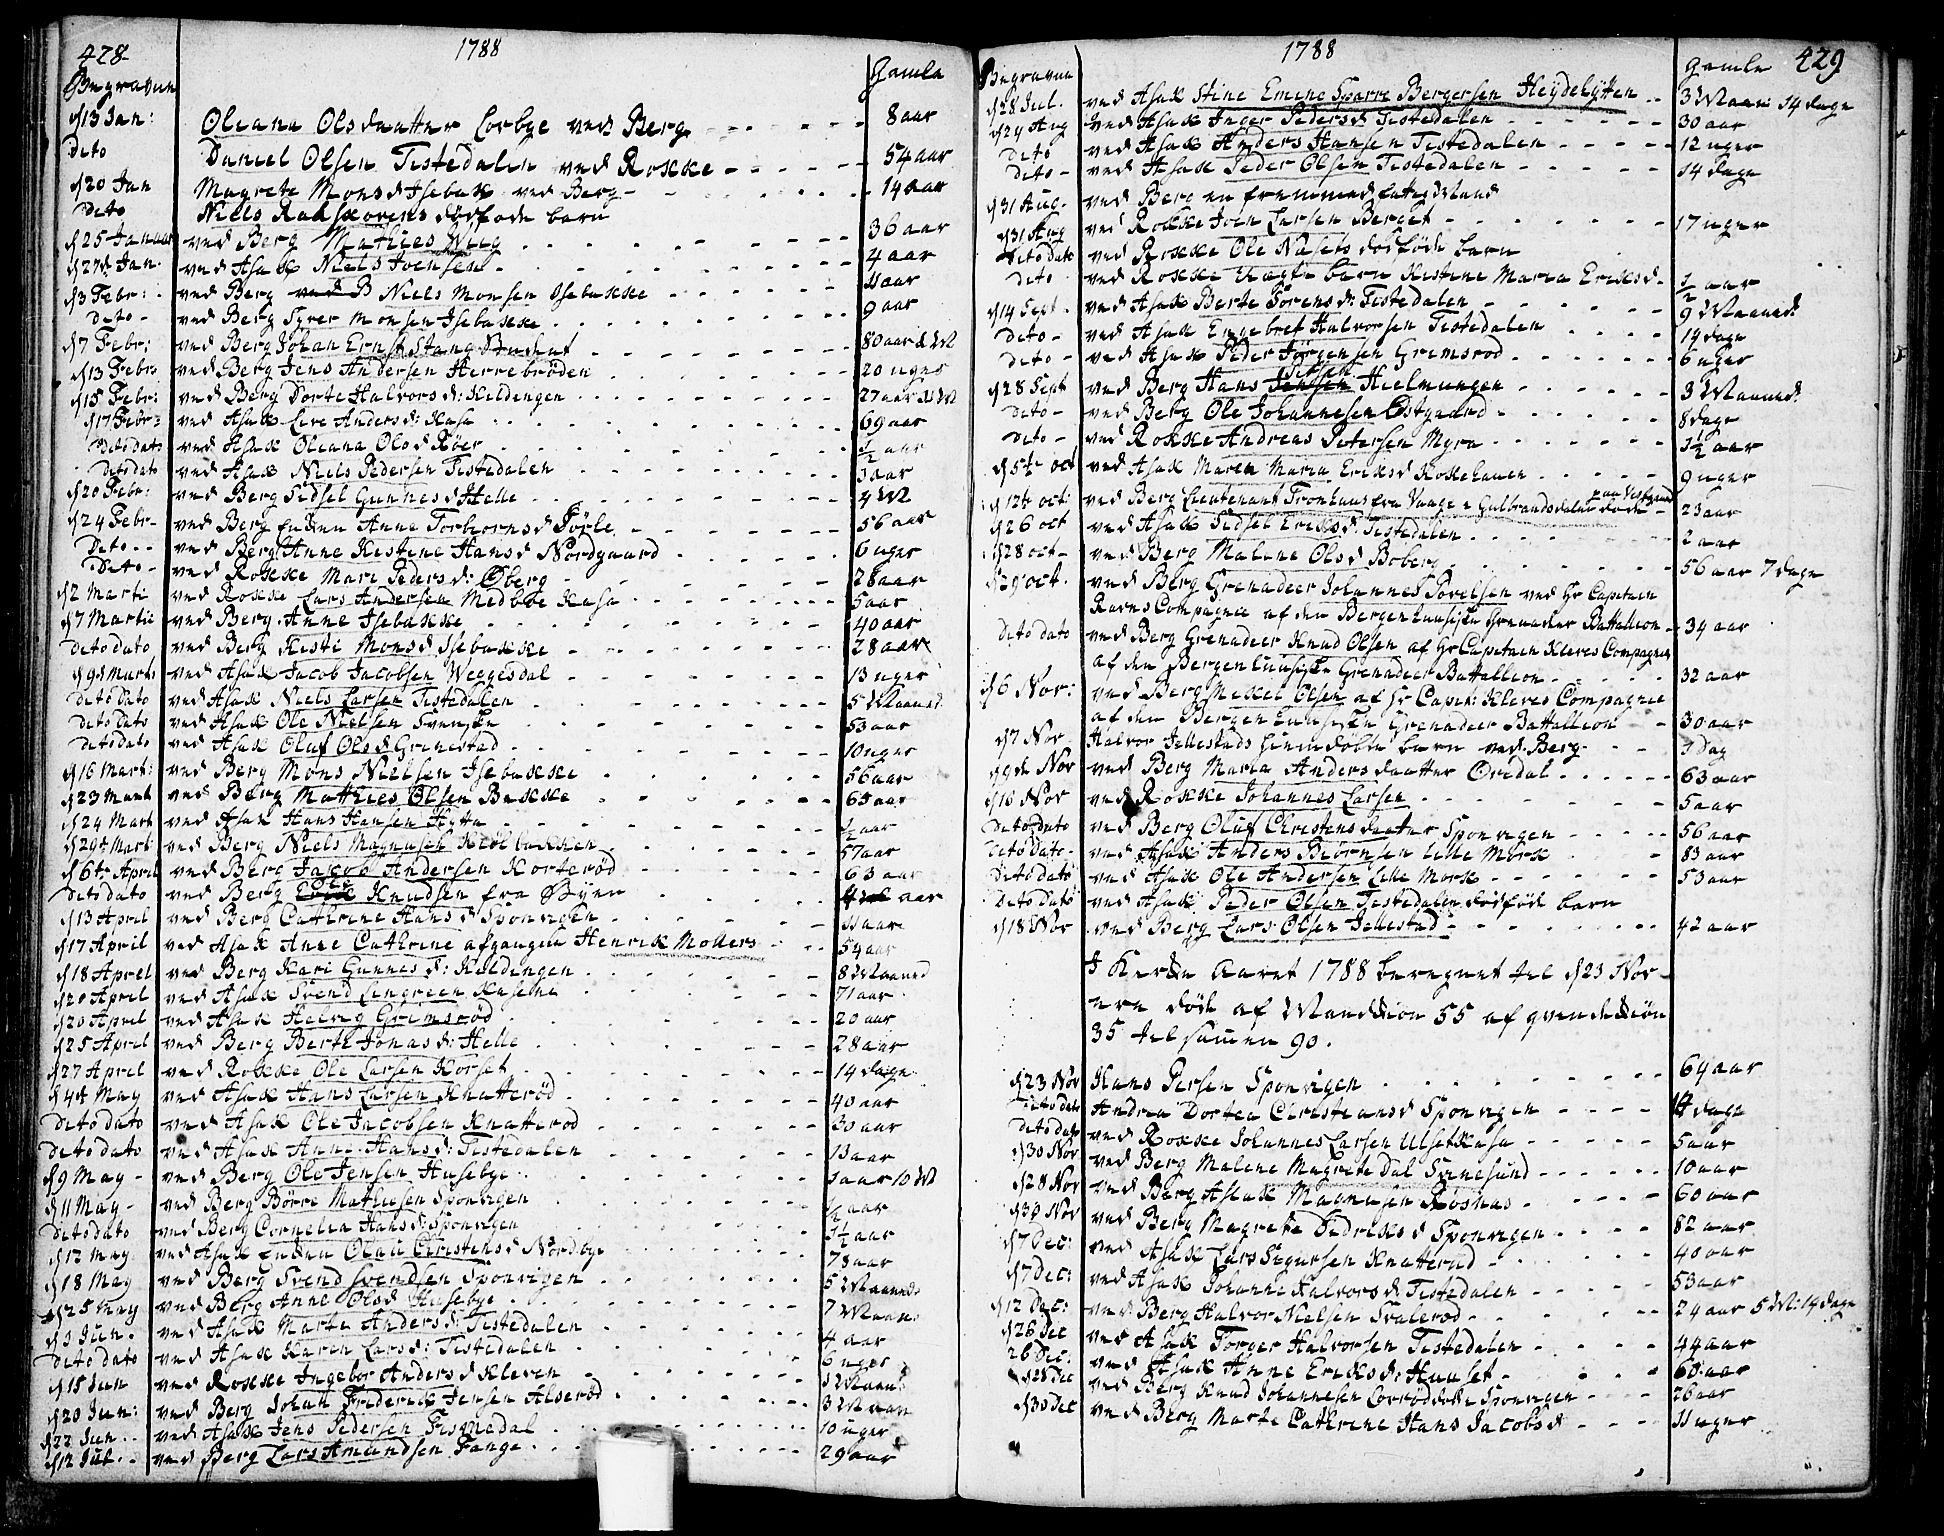 428
1788
Begravne
Gamle
d 13 Jan: Oleana Olsdaatter Corbye ved Berg 8 aar
Dito Daniel Olsen Tistedalen ved Rokke 54 aar
d 20 Jan Magrete Mons d Isebak ved Berg 14 aar
Dito Niels Rakskorens dödfode barn
d 25 Januar ved Berg Mathies Wiig 36 aar
d 27de Jan. ved Asak Niels Joensen 4 aar
d 3 Febr: ved Berg ved B Niels Monsen Isebakke 11 aar
Dito ved Berg Syver Monsen Isebakke 9 aar
d 7 Febr: ved Berg Johan Ernst Stang Student 80 aar
d 13 Febr: ved Berg Jens Andersen Herrebröden 20 uger
d 15 Febr: ved Berg Dorte Halvors d: Kildengen 27 aar
d 17 Febr: ved Asak Live Anders d: Kasa 69 aar
Dito dato ved Asak Oleana Ols d Röer 1/2 aar
Dito dato ved Asak Niels Pedersen Tistedalen 3 aar
d 20 Febr: ved Berg Sidsel Gunnes d Helle 4 M
d 24 Febr- ved Berg Enken Anne Torbiorns d Torle 56 aar
Dito - ved Berg Anne Kistine Hans d Nordgaard 6 uger
Dito - ved Rokke Mari Peders d: Öberg 28 aar
d 2 Marti ved Rokke Lars Andersen Medbye Kasa 5 aar
d 7 Martii ved Berg Anne Isebakke 40 aar
Dito dato ved Berg Kisti Mons d Isebakke 28 aar
d 9 d Marti ved Asak Jacob Jacobsen Weggesdal 13 uger
Dito Dato ved Asak Niels Larsen Tistedalen 5 Maaned
Dito Dato ved Asak Ole Nielsen Svensk 53 aar
Dito dato ved Asak Oluf Ols d Grinestad 10 uger
d 16 Mart: ved Berg Mons Nielsen Isebakke 56 aar
d 23 Mart ved Berg Matthies Olsen Bakke 65 aar
d 24 Mart ved Asak Hans Hansen Hytta 1/2 aar
d 29 d Mart ved Berg Niels Magnusen Kiölbakken 57 aar
d 6te April ved Berg Jacob Andersen Korteröd 63 aar
Dito dato ved Berg Erik Ole Knudsen fra Byen aar
d 13 April ved Berg Cathrine Hans d Sponvigen 11 aar
d 17 April ved Asak Anne Cathrine afgangen Henrik Mollers 54 aar
d 18 April ved Berg Kari Gunnes d: Kildengen 8 Maaned
d 20 April ved Asak Svend Lengreen Kasene 71 aar
d 20 April ved Asak Helvig Grimsröd 20 aar
d 25 April ved Berg Berte Jonas d: Helle 28 aar
d 27 April ved Rokke Ole Larsen Korset 14 dage
d 4de May ved Asak Hans Larsen Knatteröd 40 aar
Dito dato ved Asak Ole Jacobsen Knatterod 30 aar
Dito dato ved Asak Anne Hans d: Tistedalen 13 aar
d 9 May - ved Berg Ole Jensen Husebye 1 aar 10 M
d 11 May - ved Berg Börre Mathiesen Sponvigen 1/2 aar
Dito dato ved Berg Cornelia Hans d: Sponvigen 1 1/2 aar
d 12 May ved Asak Enken Olau Christens d Nordbye 78 aar
d 18 May ved Berg Svend Svendsen Sponvigen 5 Maaned
d 25 May ved Berg Anne Ols d Husebye 7 Maan.
d 1 Jun. ved Asak Marte Anders d: Tistedalen 4 aar
Dito dato ved Asak Karen Lars d: Tistedalen 6 uger
d 15 Jun ved Rokke Ingebor Anders d Kleven 3 Maan:
d 20 Jun: ved Berg Johan Friderick Jensen Alderöd 3 Maan
d 22 Jun. ved Asak Jens Pedersen Fismedal 10 uger
d 12 Jul. ved Berg Lars Amundsen Fange 29 aar
1788
429
Begravne
Gamle
d 28 Jul. ved Asak Stine Emene Sparre Bergersen Heydehytten 3 Maan 14 dage
d 24 Aug ved Asak Inger Peders d Tistedalen 30 aar
Dito ved Asak Anders Hansen Tistedalen 12 uger
Dito - ved Asak Peder Olsen Tistedalen 14 dage
d 31 Aug. ved Berg en fremmed
d 31 Aug ved Rokke Joen Larsen Berget 17 uger
Dito dato ved Rokke Ole Nasets dödföde barn
Dito ved Rokke barn Kistine Maria Eriks d. 1/2 aar
d 14 Sept. ved Asak Berte Sörens d: Tistedalen 9 Maaned
Dito - ved Asak Engebret Halvorsen Tistedalen 14 dage
Dito - ved Asak Peder Jörgensen Grimsrod 6 uger
d 28 Sept ved Berg Hans Jensen Hielmungen 3 Maaned
Dito - ved Berg Ole Johannesen Östgaard 8 dage
Dito - ved Rokke Andreas Petersen Myra 1 1/2 aar
d 5te oct ved Asak Maren Maria Eriks d Kokehauen 9 uger
d 12te oct: ved Berg Lieutenant Tronhuus fra Vaage i Gulbrandsdalen paa Vestgaard döde 23 aar
d 26 oct ved Asak Sidsel Eriks d Tistedalen 2 aar
d 28 oct- ved Berg Malene Ols d Boberg 56 aar 7 dage
d 29 oct. ved Berg Grenadeer Johannes Torelsen ved Hr Capitain
Ravns Compagnie af den Bergenhuusiske Grenadeer Battallion 34 aar
Dito dato ved Berg Grenadeer Knud Olsen af Hr Capitain Kleves Compagnie
af den Bergenhuusiske Grenadeer Battallion 32 aar
d 6 Nov: ved Berg Mekel Olsen af Hr Capit: Kleves Compagnie
af den Bergenhuusiske Grenadeer Battallion 30 aar
d 7 Nov Halvor Jellestads hiemdöbte barn ved Berg 1 Dag
d 9de Nov ved Berg Maria Andersdaatter Oredal 63 aar
d 10 Nov ved Rokke Johannes Larsen 5 aar
Dito dato ved Berg Oluf Christensdaater Sponvigen 56 aar
Dito Dato. ved Asak Anders Biörnsen Lille Mörk 83 aar
Dito dato ved Asak Ole Andersen Lille Mork 53 aar
Dito Dato ved Asak Peder Olsen Tistedalen dödföd barn
d 18 Nov ved Berg Lars Olsen Jellestad 42 aar
I Kirke Aaret 1788 beregnet til d 23 Nov-
ere döde af Mandkiön 55 af qvindekiön
35 til sammen 90.
d 23 Nov Hans Persen Sponvigen 64 aar
Dito dato Andrea Dortea Christians d Sponvigen 14 dage
Dito dato ved Rokke Johannes Larsen Ulsetkasa 5 aar
d 30 Nov ved Berg Malene Magrete Dal Sinnesund 10 aar
d 28 Nov ved Berg Aslak Magnusen Rösnas 60 aar
d 30 Nov ved Berg Magrete Didriks d Sponvigen 82 aar
d 7 Dec: ved Asak Lars Sigursen Knatterud 40 aar
d 7 Dec: ved Asak Johanne Halvors d Tistedalen 53 aar
d 12 Dec: ved Berg Halvor Nielsen Svalerod 24 aar 5 M: 14 dage
d 26 Dec ved Asak Torger Halvorsen Tistedalen 44 aar
26 Dec: ved Asak Anne Eriks d: Huuset 60 aar
d 28 Dec ved Berg Knud Johannesen Sponvigen 26 aar
d 30 Dec ved Berg Marte Cathrine Hans Jacobs d 11 uger